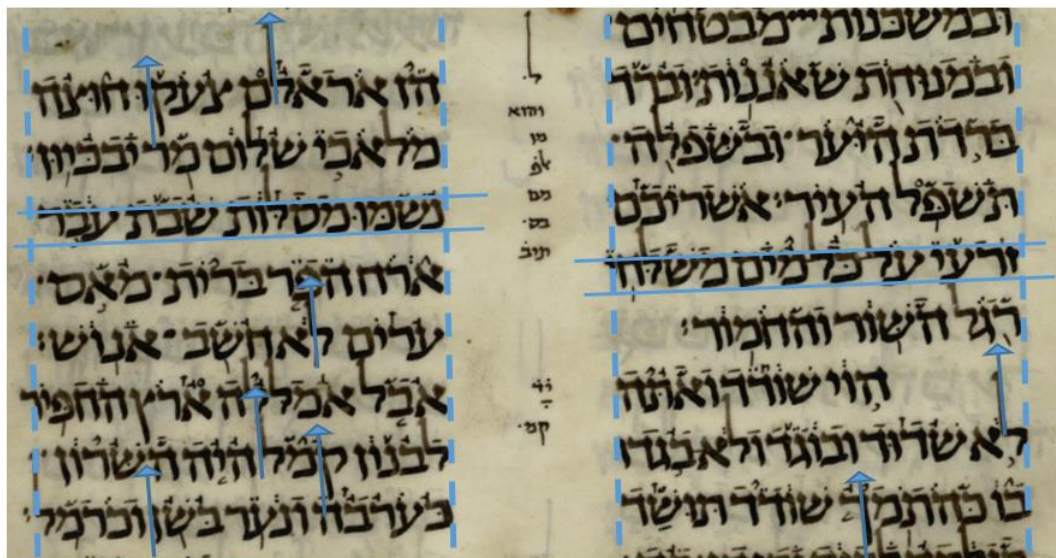 ובמשכנות מבטחים
ובמנוחת שאננות וברד
ברדת היער ובשפלה
תשפל העיר אשריכם
זרעי על כל מים משלחי
רגל השור והחמור
הוי שודד ואתה
לא שדוד ובוגד ולא בגדו
בו כהתמך שודד תושד
ל
והוא
מן
מם
תוב
הן אראלם צעקו חוצה
מלאכי שלום מר יבכיון
נשמו מסלות שבת עבר
ארח הפר ברית מאס
ערים לא חשב אנוש
אבל אמללה ארץ החפיר
לבנון קמל היה השרון
כערבה ונער בשן וכרמל